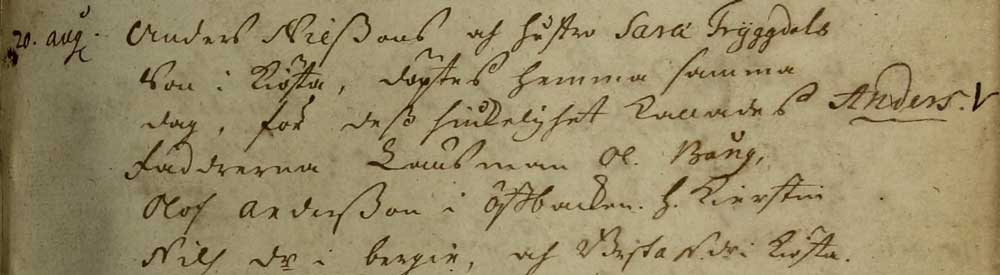 20. aug. Anders Nilßons och hustro Sara Tryggdels
Son i Kiösta, döptes hemma samma
dag, för deß siukelighet kallades Anders. V
Faddrerna Länsman Ol. Bång,
Olof Anderßon i Östbacken. H. Kierstin
Nils dr i bergie, och Brita N. dr i Kiösta.